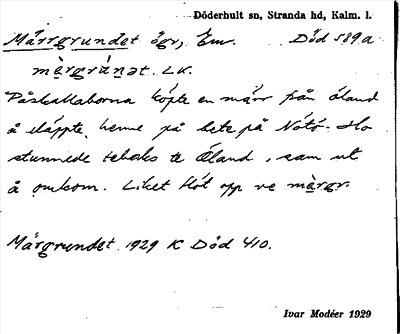 Döderhult sn, Stranda hd, Kalm. l.
Märrgrundet ögr, Em. Död 589a
mærgrúnət. LK.
Påskallaborna köpte en märr från Öland
å släppte henne på bete på Nötö. Ho
stunnede tebaks te Öland, sam ut
å omkom. Liket flöt opp ve märgr.
Märgrundet 1929 K Död 410.
Ivar Modéer 1929